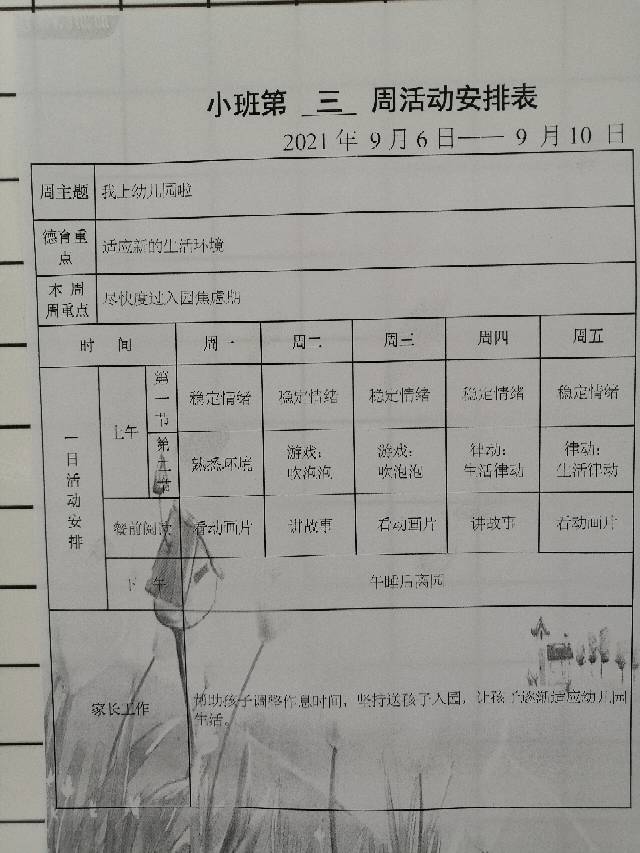 小班第 三 周活动安排表
2021 年 9 月 6 日—— 9 月 10 日
周主题 我上幼儿园啦
德育重点 适应新的生活环境
本 周周重点 尽快度过入园焦虑期
时 间 周一 周二 周三 周四 周五
一日活动安排
上午
第一节 稳定情绪 稳定情绪 稳定情绪 稳定情绪 稳定情绪
第二节 熟悉环境 游戏：吹泡泡 游戏：吹泡泡 律动：生活律动 律动：生活律动
餐前阅读 看动画片 讲故事 看动画片 讲故事 看动画片
下 午 午睡后离园
家长工作
帮助孩子调整作息时间，坚持送孩子入园，让孩子逐渐适应幼儿园
生活。